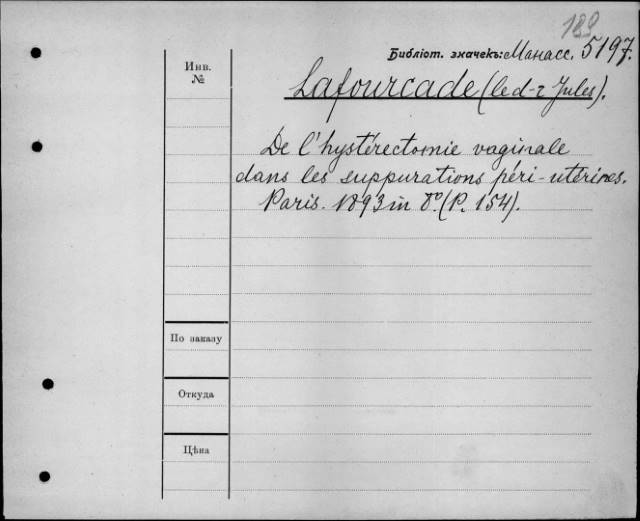 189
Библіот. значекъ: Манасс. 5197.
Инв.
№
Lafourcade (le d-r Jules).
De l'hystérectomie vaginale
dans les suppurations péri-utérines.
Paris. 1893 in 8º. (P. 154).
По заказу
Откуда
Цѣна